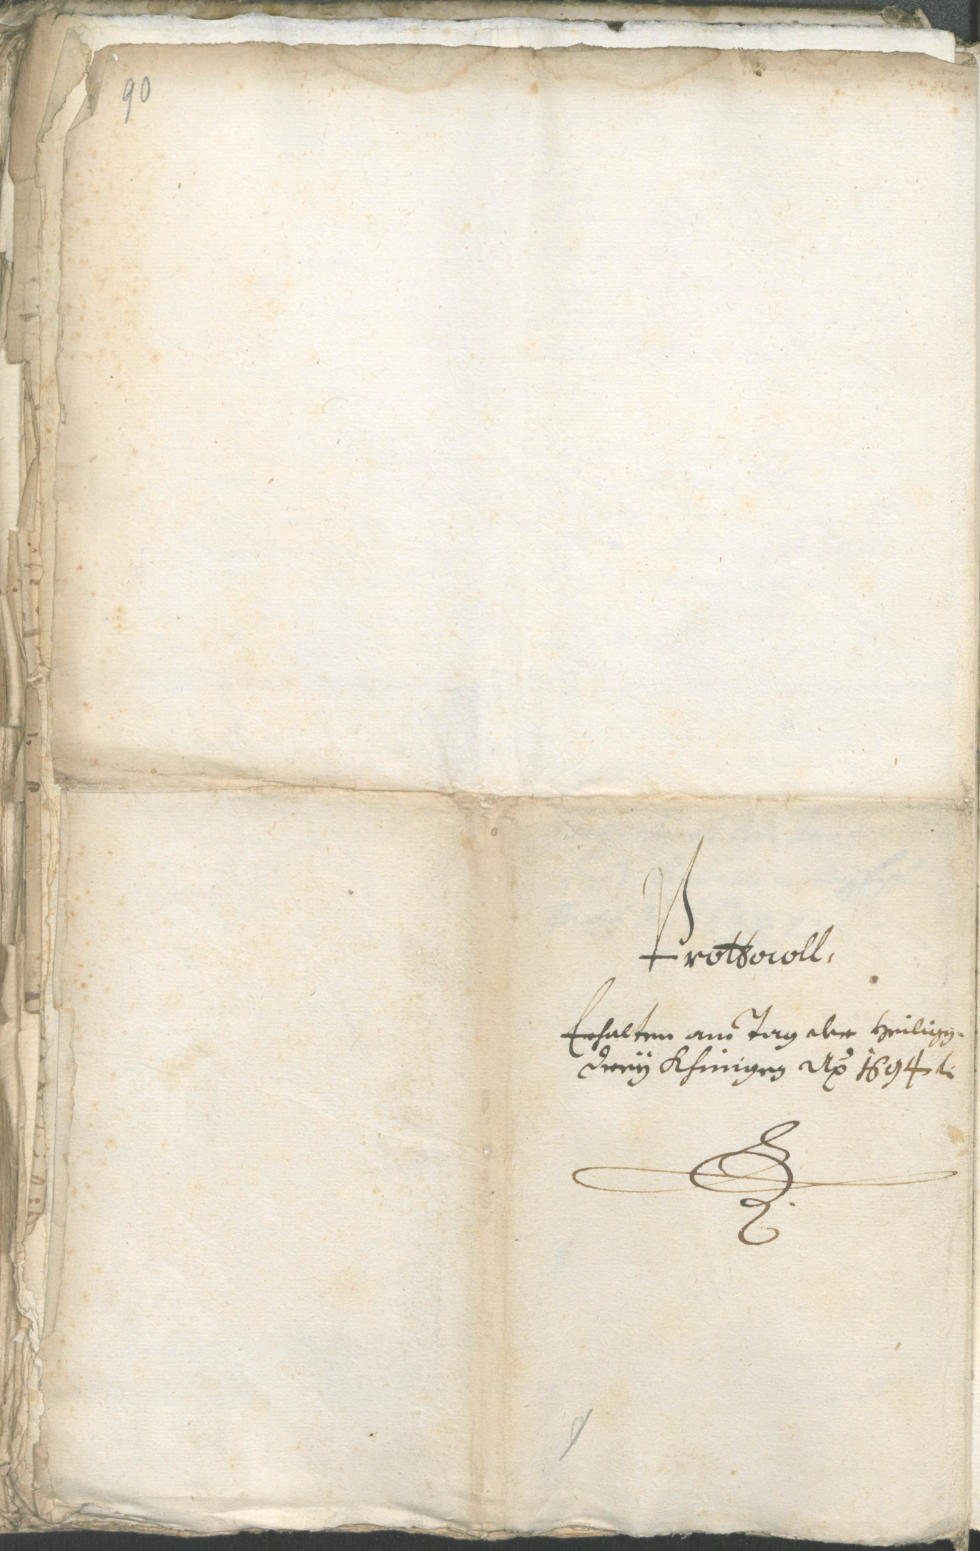 90
Prottocoll,
Erhalten am Tag der Heiligen
dreÿ Khinigen Aō 1694